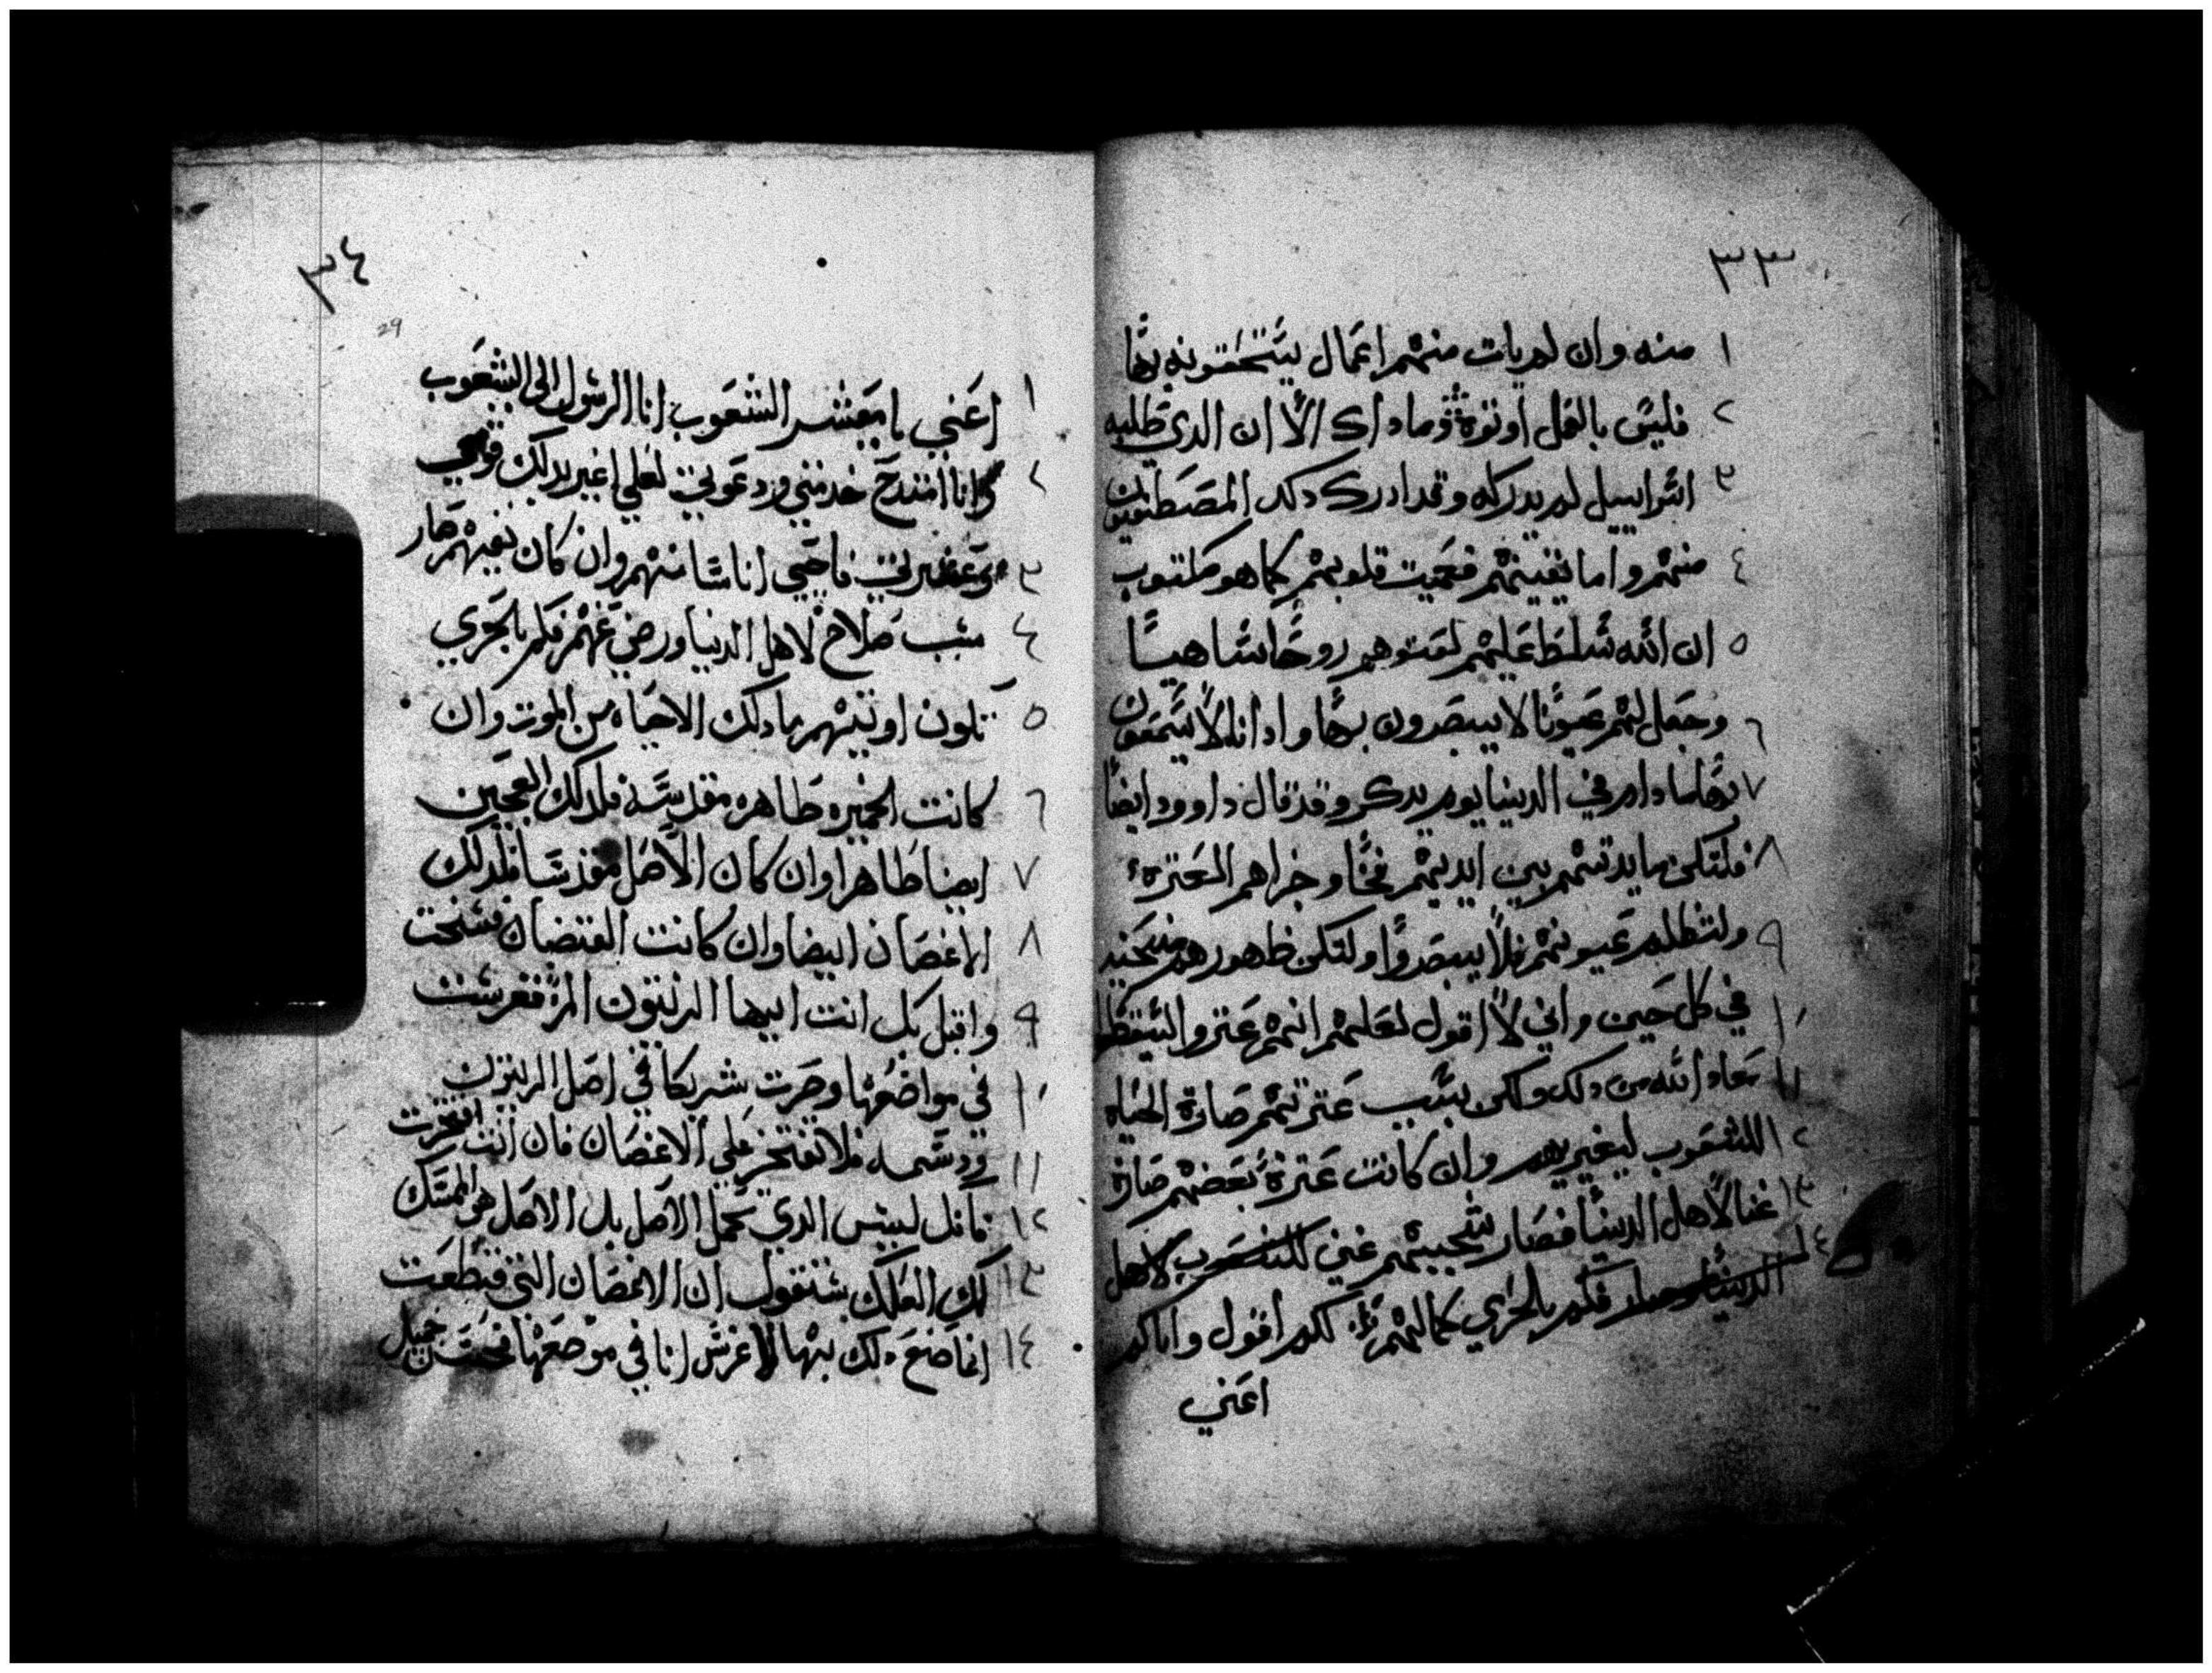 ٣٣
١ منه وان لم يات منهم اعمال يستحقونه بها
٢ فليس بالعمل اوتوه وماداك الا ان الدي طلبه
٣ اسراييل لم يدركه وقد ادرك دلك المصطفون
٤ منهم واما بقيتهم فعميت قلوبهم كما هو مكتوب
٥ ان الله سلط عليهم لعتوهم روحا ساهيا
٦ وجعل لهم عيونا لا يبصرون بها وادانا لا يسمعون
٧ بها مادام في الدنيا يوم يدكر وقد قال داوود ايضا
٨ فلتكن مايدتهم بين ايديهم فخا وجزاهم العثره
٩ ولتظلم عيونهم فلا يبصروا ولتكن ظهورهم منحنيه
١٠ في كل حين واني لا اقول لعلهم انهم عتروا ليسقطوا
١١ معاد الله من دلك ولكن بسبب عترتهم صارة الحياه
١٢ للشعوب ليغيرهم وان كانت عترة بعضهم صارة
١٣ غنا لاهل الدنيا فصار شجبهم غني للشعوب لاهل
١٤ الدنيا فكم بالحري كمالهم لكم اقول واياكم
اعني
٣٤
29
١ اعني يا معشر الشعوب انا الرسول الى الشعوب
٢ وانا امتدح خدمتي ودعوتي لعلي اغير بدلك قومي
٣ وعشيرتي فاحيي اناسا منهم وان كان نفيهم صار
٤ سبب صلاح لاهل الدنيا ورضي عنهم فكم بالحري
٥ تكون اوبتهم ما دلك الا حياه من الموت وان
٦ كانت الخميره طاهره مقدسه فلدلك العجين
٧ ايضا طاهرا وان كان الاصل مقدسا فلدلك
٨ الاغصان ايضا وان كانت الاغصان فسخت
٩ واقبل بك انت ايها الزيتون المر فغرست
١٠ في مواضعها وصرت شريكا في اصل الزيتون
١١ ودسمه فلا تفتخر علي الاغصان فان انت افتخرت
١٢ فانك ليس الدي تحمل الاصل بل الاصل هو الممسك
١٣ لك العلك ستقول ان الاغصان التي قطعت
١٤ انما صنع دلك بها لاغرس انا في موضعها فحسن جميل